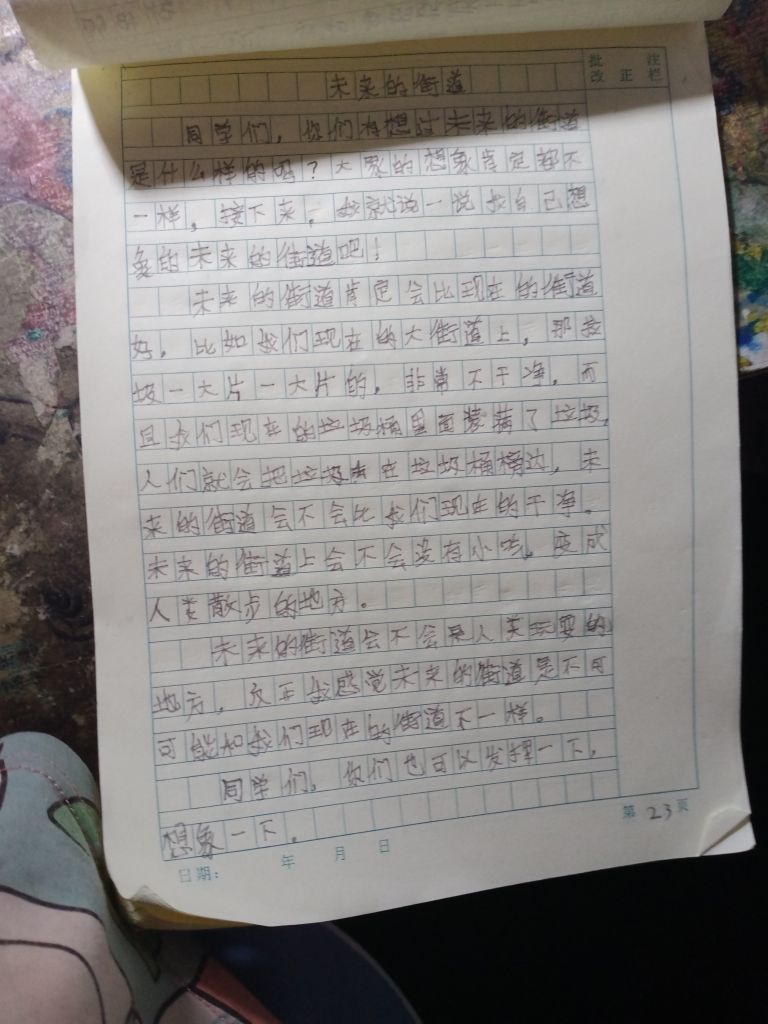 批 注
改 正 栏
未来的街道
同学们，你们有想过未来的街道
是什么样的吗？大家的想象肯定都不
一样，接下来，我就说一说我自己想
象的未来的街道吧！
未来的街道肯定会比现在的街道
好，比如我们现在的大街道上，那垃
圾一大片一大片的，非常不干净，而
且我们现在的垃圾桶里面装满了垃圾，
人们就会把垃圾 在垃圾桶横边，未
来的街道会不会比我们现在的干净。
未来的街道上会不会没有小吃，变成
人类散步的地方。
未来的街道会不会是人类玩耍的
地方，反正我感觉未来的街道是不可
可能和我们现在的街道不一样。
同学们，你们也可以发挥一下，
想象一下。
日期： 年 月 日
第 23 页